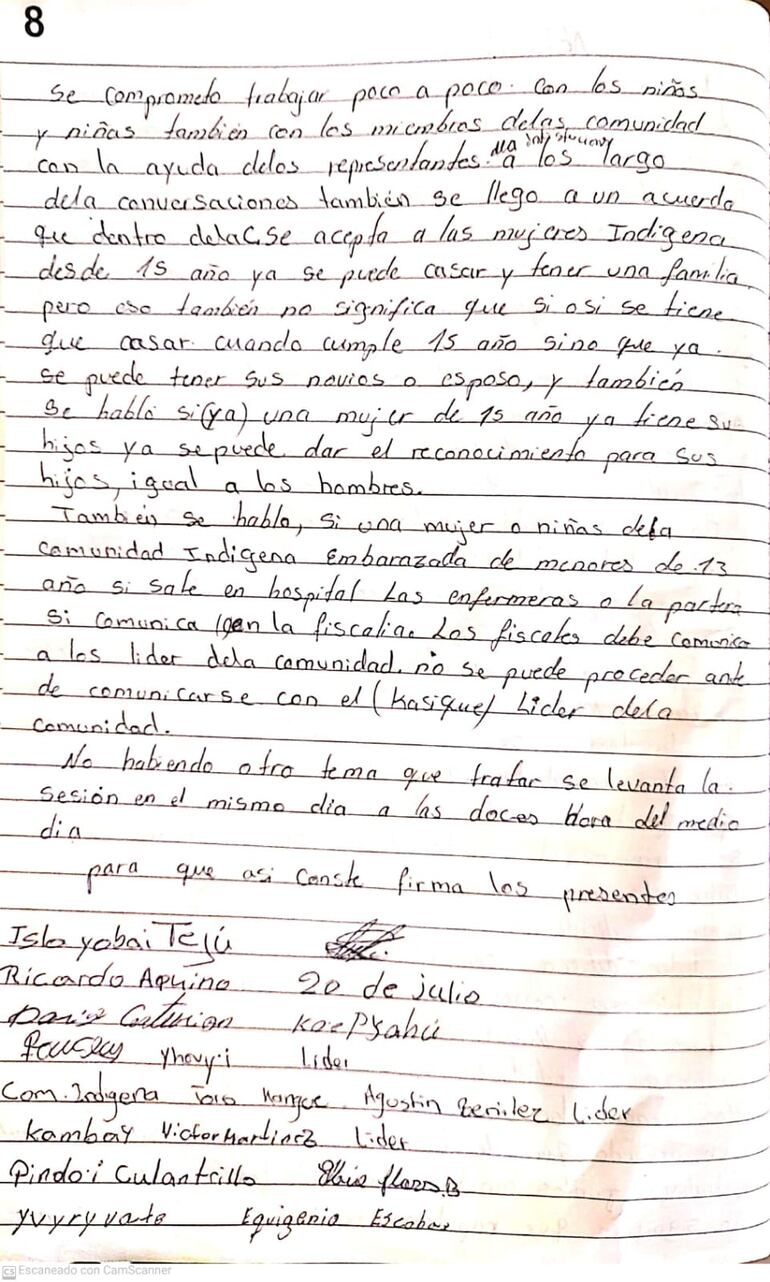 8
se comprometo trabajar poco a poco. Con los niñas
y niñas también con los miembros delas comunidad
con la ayuda delos representantes. a los largo
dela conversaciones también se llego a un acuerdo
que dentro dela C, se acepta a las mujeres Indigena
desde 15 año ya se puede casar y tener una familia,
pero eso también no significa que si osi se tiene
que casar. cuando cumple 15 año sino que ya.
se puede tener sus novios o esposo, y también
se habló si (ya) una mujer de 15 año ya tiene su
hijos ya se puede dar el reconocimiento para sus
hijos, igual a los hombres.
También se hablo, si una mujer o niñas dela
comunidad Indigena Embarazada de menores de 13
año si sale en hospital Las enfermeras o la partera
si comunica en la fiscalia. Los fiscales debe comunica
a los lider dela comunidad. no se puede proceder ante
de comunicarse con el (Kasique) Lider dela
comunidad.
No habiendo otro tema que tratar se levanta la.
sesión en el mismo dia a las doces Hora del medio
dia
para que asi conste firma los presentes
Isla yobai Tejú
Ricardo Aquino 20 de julio
Yhovy.i Lider
Com. Indgena Agustin Lider
Kambay Victor Martinez Lider
Pindo'i Culantrillo flores.B
yvyry Escobar
CS Escaneado con CamScanner